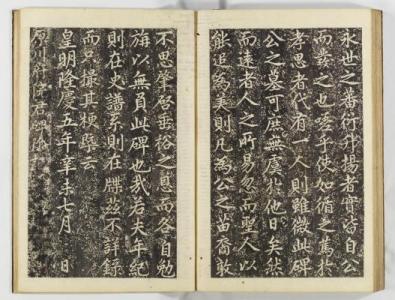 永世之蕃衍升揚者實皆自公
而發之也嗟乎使如循之舊於
孝思者代有一人則雖微此碑
公之墓可庶無虞於他日矣然
而遠者人之所易忽而聖人以
能追為美則凡為公之苗裔敢
不思肇啓垂裕之懿而各自勉
旃以無負此碑也哉若夫年紀
則在史譜系則在牒茲不詳錄
而只撮其梗槩云
皇明隆慶五年辛未七月 日